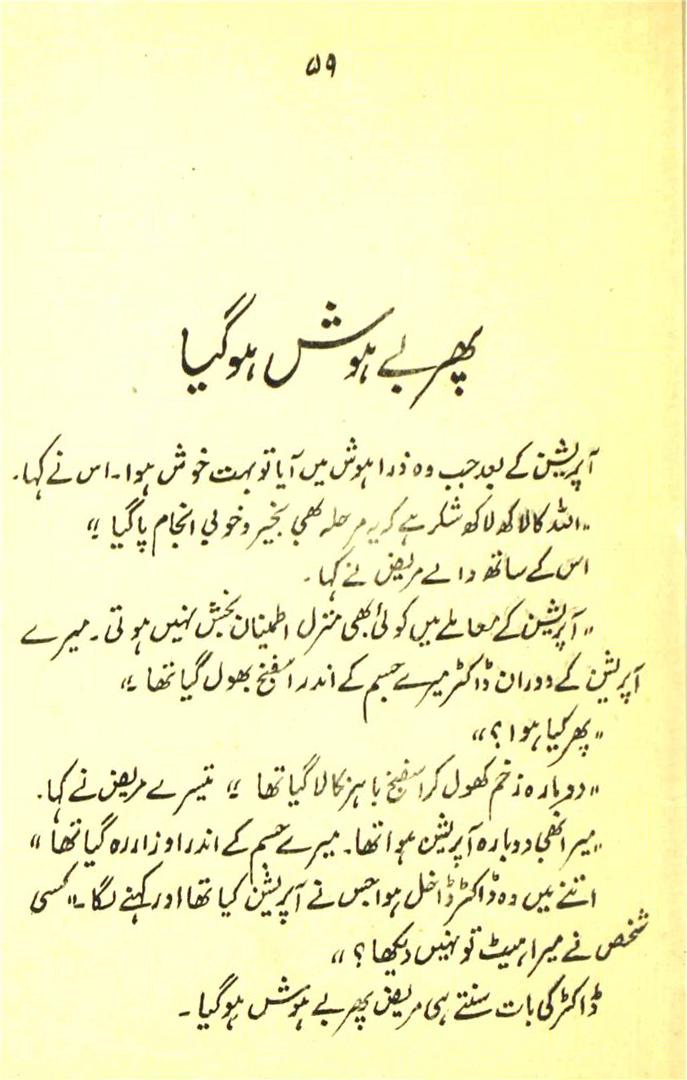 ۵۹
پھر بے ہوش ہوگیا
آپریشن کے بعد جب وہ ذرا ہوش میں آیا تو بہت خوش ہوا۔ اس نے کہا۔
"اللہ کا لاکھ لاکھ شکر ہے کہ یہ مرحلہ بھی بخیر و خوبی انجام پاگیا۔"
اس کے ساتھ والے مریض نے کہا۔
"آپریشن کے معاملے میں کوئی بھی منزل اطمینان بخش نہیں ہوتی۔ میرے
آپریشن کے دوران ڈاکٹر میرے جسم کے اندر اسفنج بھول گیا تھا۔"
"پھر کیا ہوا؟"
"دوبارہ زخم کھول کر اسفنج باہر نکالا گیا تھا۔" تیسرے مریض نے کہا۔
"میرا بھی دوبارہ آپریشن ہوا تھا۔ میرے جسم کے اندر اوزار رہ گیا تھا"
اتنے میں وہ ڈاکٹر داخل ہوا جس نے آپریشن کیا تھا اور کہنے لگا۔ "کسی
شخص نے میرا ہیٹ تو نہیں دیکھا؟"
ڈاکٹر کی بات سنتے ہی مریض پھر بے ہوش ہوگیا۔